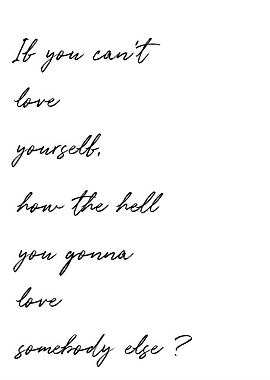 If you can't
love
yourself,
how the hell
you gonna
love
somebody else ?